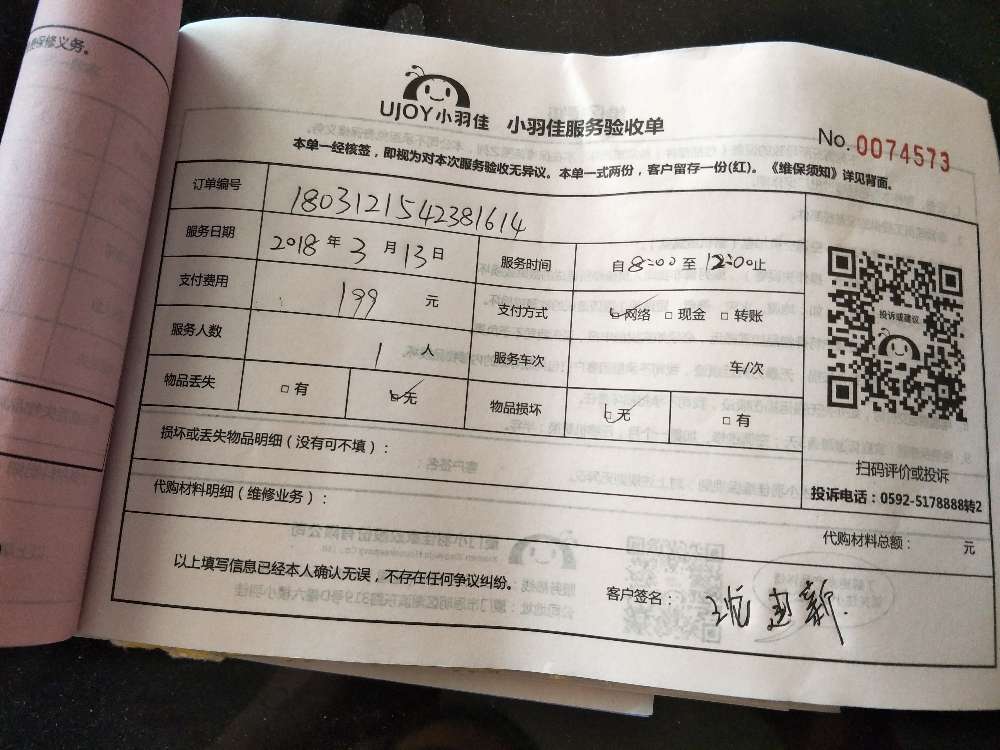 保修义务。
UJOY小羽佳 小羽佳服务验收单
No.0074573
本单一经核签，即视为对本次服务验收无异议。本单一式两份，客户留存一份(红)。《维保须知》详见背面。
订单编号 1803121542381614
服务日期 2018年3月13日 服务时间 自8:00至12:00止
支付费用 199元 支付方式 ☑网络 □现金 □转账
服务人数 1人 服务车次 车/次
物品丢失 □有 ☑无 物品损坏 ☑无 □有
投诉或建议
损坏或丢失物品明细（没有可不填）：
扫码评价或投诉
代购材料明细（维修业务）：
投诉电话：0592-5178888转2
代购材料总额： 元
以上填写信息已经本人确认无误，不存在任何争议纠纷。 客户签名：